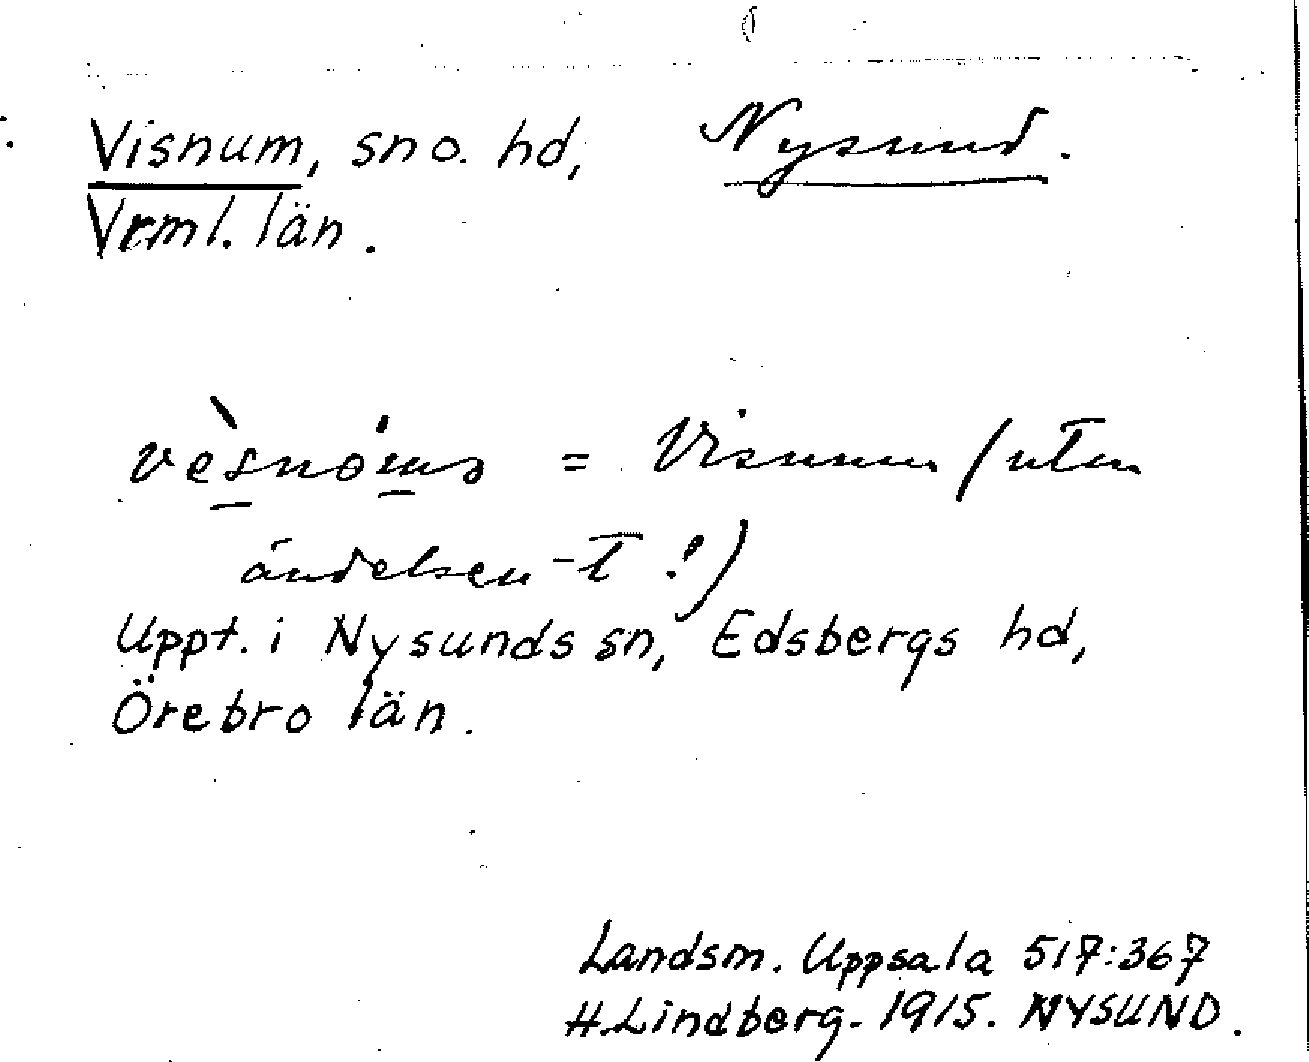 Visnum, sn o. hd, Nysund.
Vrml. län.
vèsnóms = Visnum (utan
ändelsen -t!)
Uppt. i Nysunds sn, Edsbergs hd,
Örebro län.
Landsm. Uppsala 517:367
H. Lindberg. 1915. NYSUND.